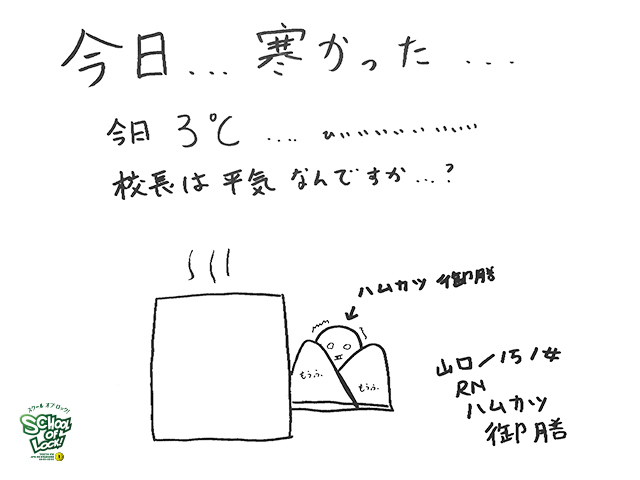 今日...寒かった...
今日 3℃ .... ひぃぃぃぃぃぃぃ
校長は平気なんですか...?
ハムカツ御膳
もうふ
もうふ
山口/15/女
RN
ハムカツ
御膳
スクール オブ ロック!
SCHOOL
OF
LOCK!